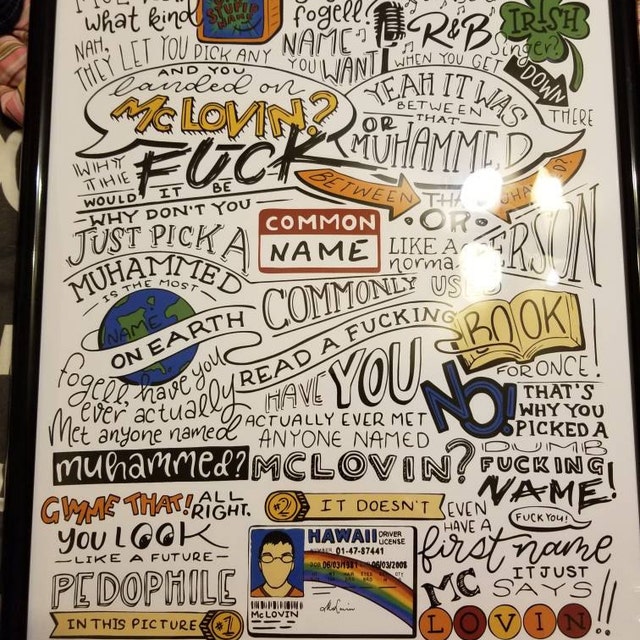 what kind
STUPID
NAME
fogell?
R&B
IRISH
Singer?
NAH,
THEY LET YOU PICK ANY
NAME
YOU WANT
WHEN YOU GET
DOWN
THERE
AND YOU
landed on
McLOVIN?
YEAH IT WAS
BETWEEN
THAT
OR
MUHAMMED
WHY
THE
FUCK
WOULD
IT
BE
BETWEEN
THAT
OR
WHY DON'T YOU
JUST PICK A
COMMON
NAME
LIKE A
normal
PERSON
MUHAMMED
IS THE MOST
COMMONLY
USED
NAME
ON EARTH
READ A FUCKING
BOOK
FOR ONCE!
Fogell, have you
ever actually
Met anyone named
muhammed?
HAVE
YOU
ACTUALLY EVER MET
ANYONE NAMED
MCLOVIN?
NO!
THAT'S
WHY YOU
PICKED A
DUMB
FUCKING
NAME!
GIMME THAT!
ALL
RIGHT.
YOU LOOK
LIKE A FUTURE
PEDOPHILE
IN THIS PICTURE
#1
#2
IT DOESN'T
EVEN
HAVE A
FUCK YOU!
first name
IT JUST
SAYS
MC
LOVIN!!
HAWAII
DRIVER
LICENSE
NUMBER 01-47-87441
DOB 06/03/1981
06/03/2008
McLOVIN